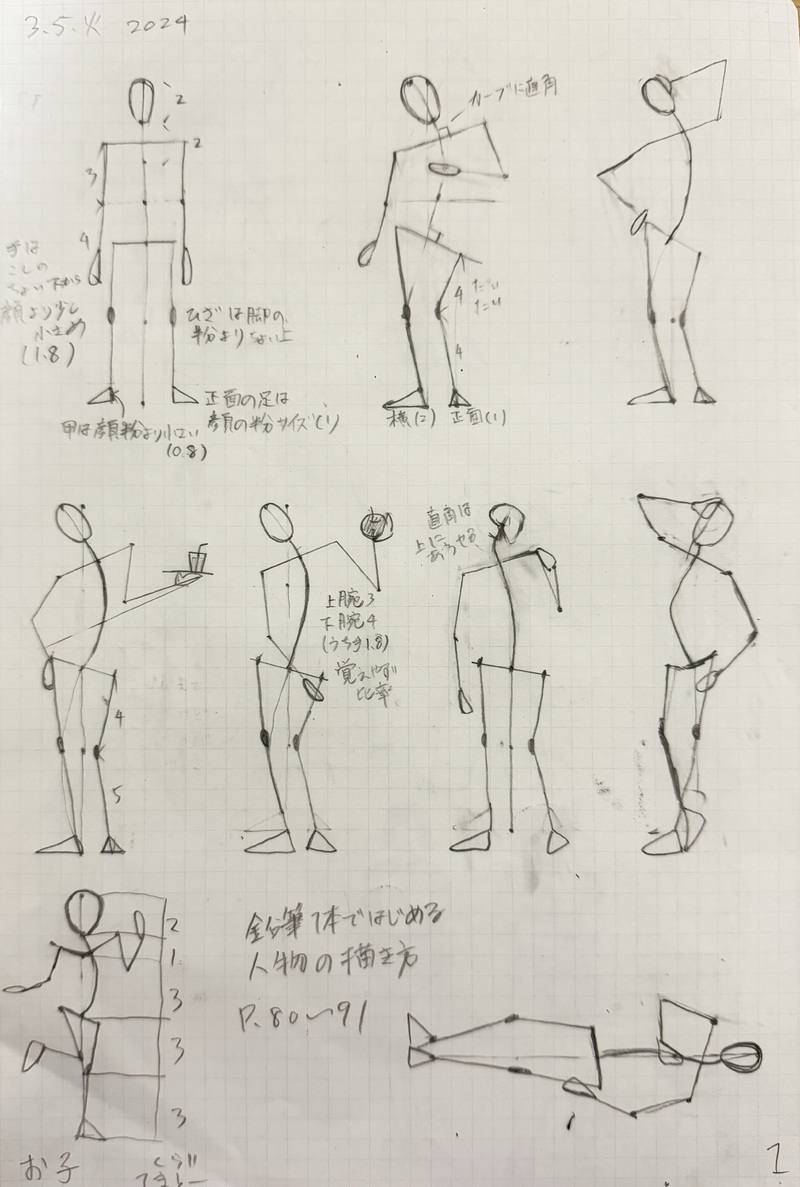 3.5.火 2024
2
2
3
4
手は
こしの
ちょい下から
顔より少し
小さめ
(1.8)
ひざは脚の
半分よりちょい上
甲は顔半分より小さい
(0.8)
正面の足は
顔の半分サイズ(1)
カーブに直角
4
だい
たい
4
横(2) 正面(1)
4
5
上腕3
下腕4
(うち手1.8)
覚えやす
比率
直角は
上に
あらせる
2
1
3
3
3
鉛筆1本ではじめる
人物の描き方
P.80〜91
お子
1